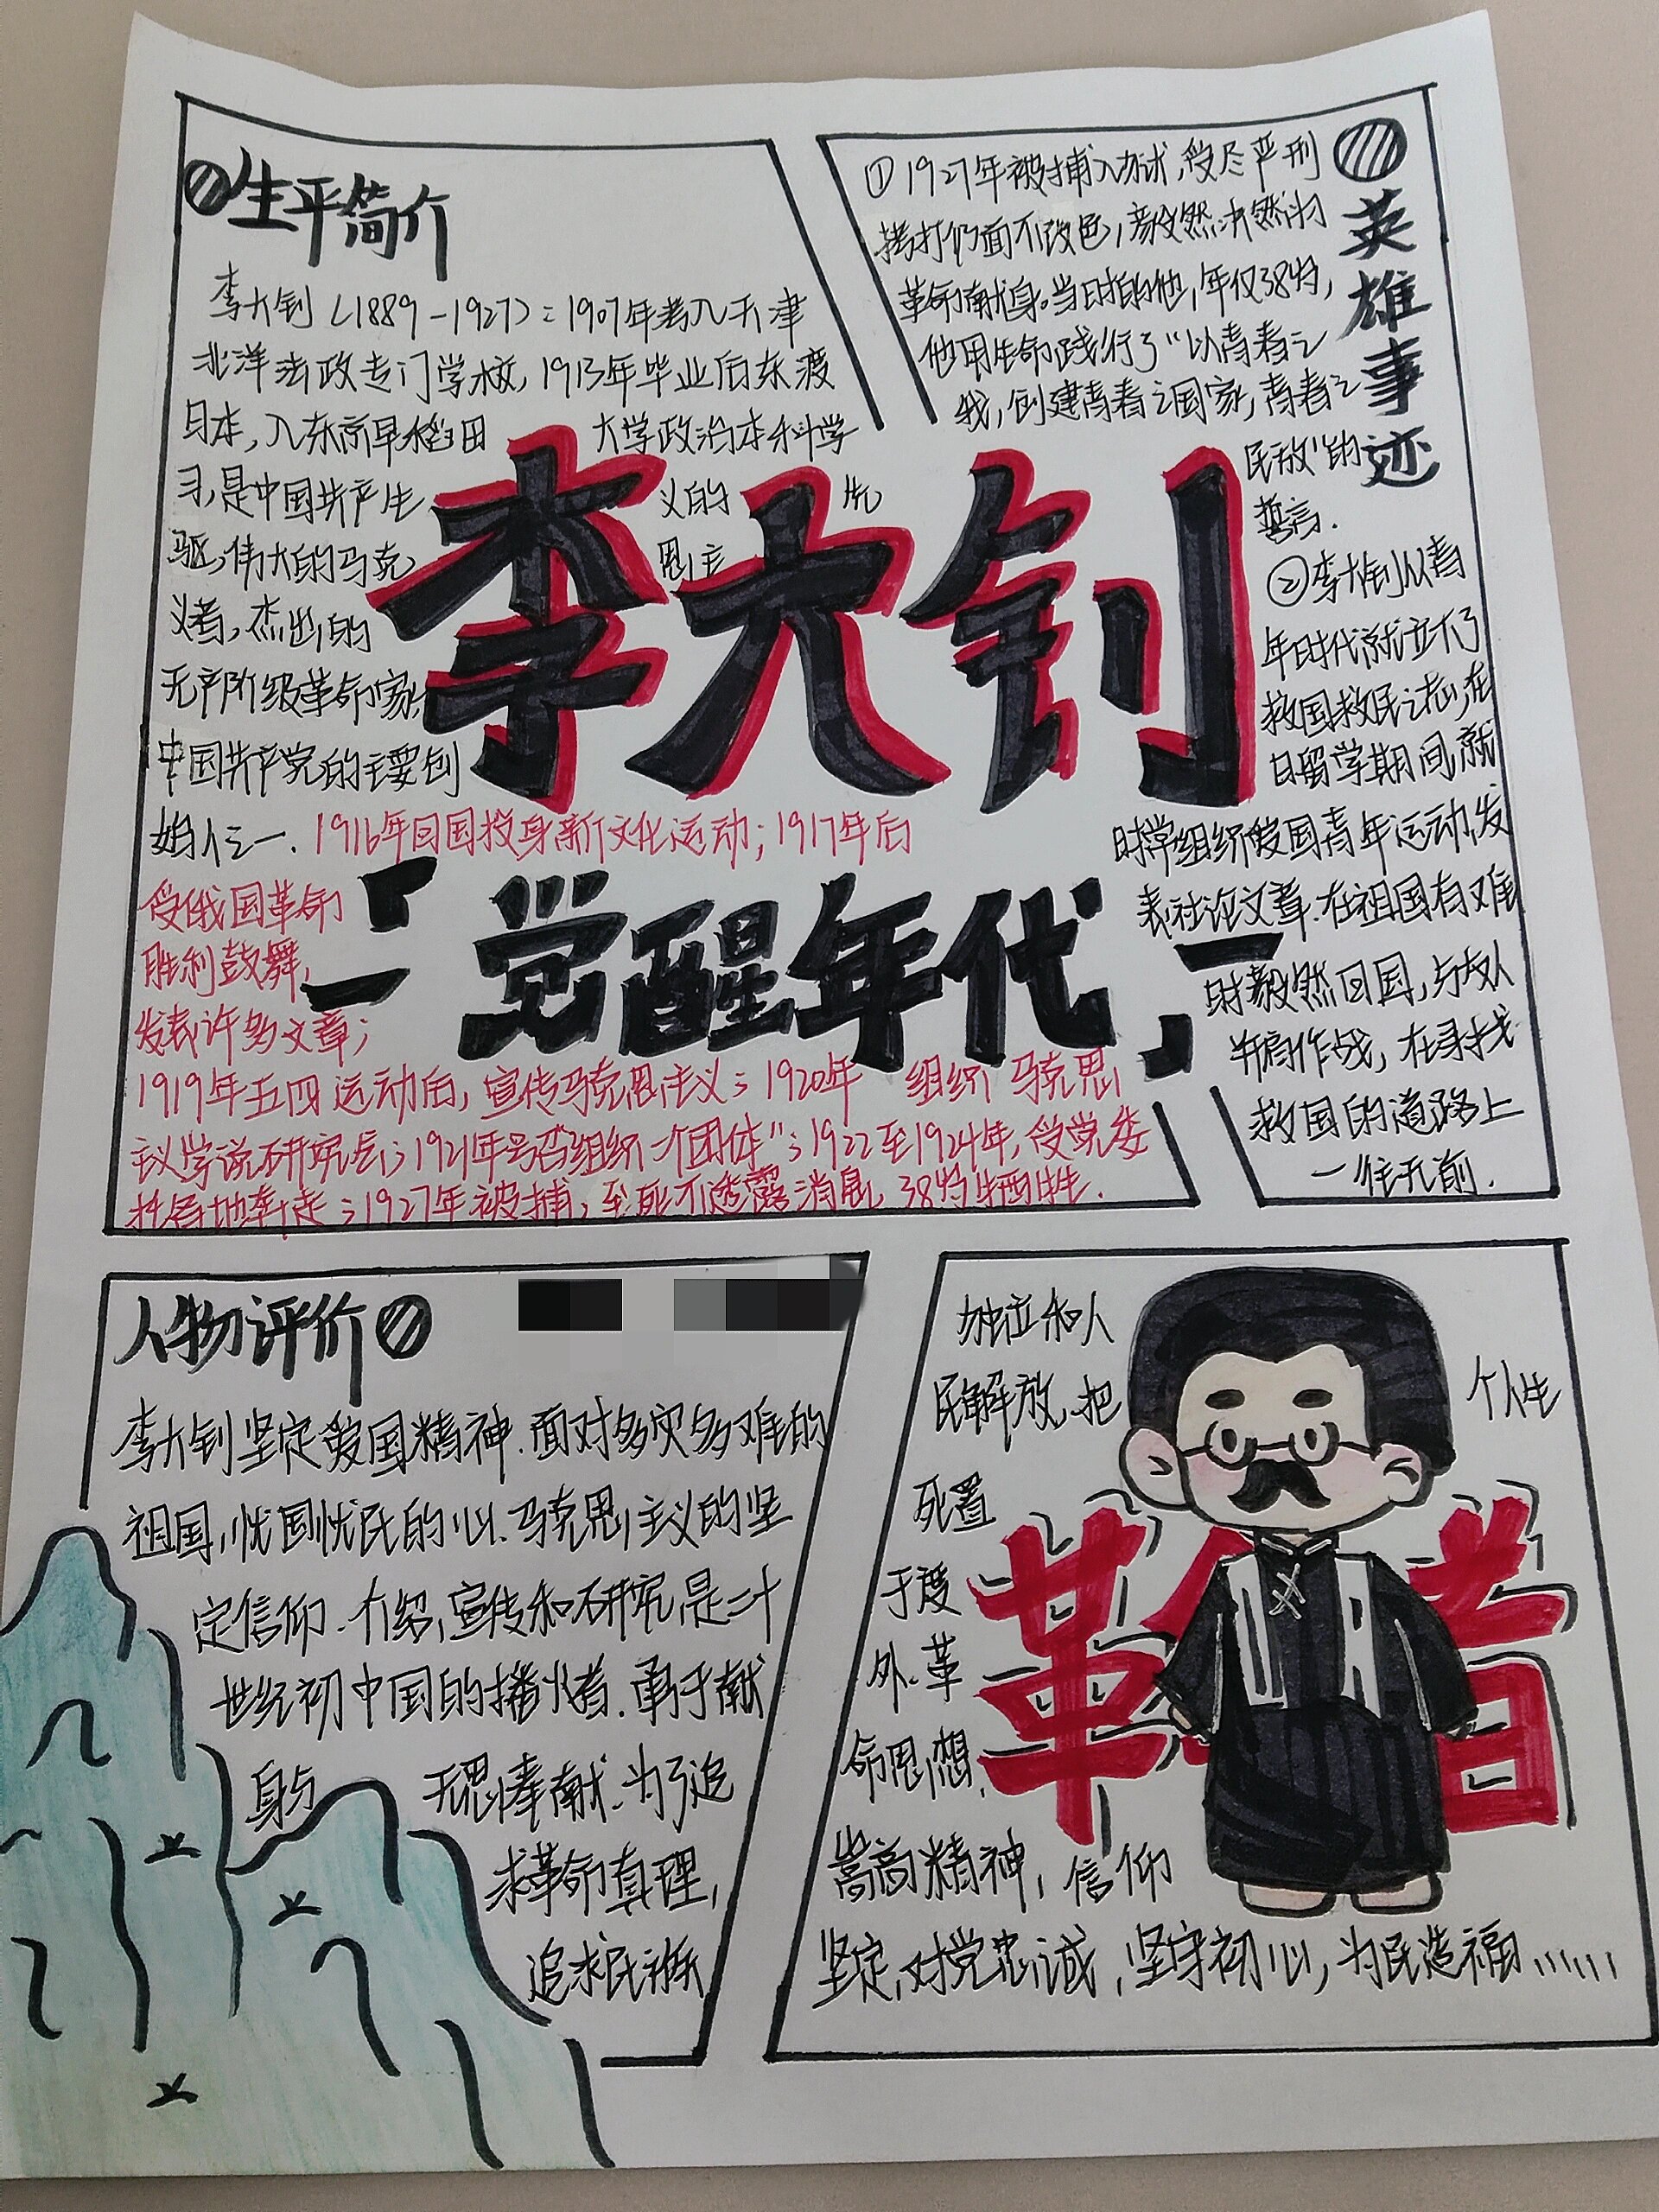 生平简介
李大钊(1889-1927):1907年考入天津
北洋法政专门学校,1913年毕业后东渡
日本,入东京早稻田 大学政治本科学
习,是中国共产 义的 先
驱,伟大的马克 思主
义者,杰出的
无产阶级革命家,
中国共产党的主要创
始人之一.1916年回国投身新文化运动;1917年后
受俄国革命
胜利鼓舞,
发表许多文章;
1919年五四运动后,宣传马克思主义;1920年 组织 马克思
主义学说研究会;1921年号召"组织一个团体";1922至1924年,受党委
托各地奔走;1927年被捕,至死不透露消息,38岁牺牲.
李大钊
「觉醒年代」
英雄事迹
①1927年被捕入狱,受尽严刑
拷打仍面不改色,毅然决然为
革命献身。当时的他,年仅38岁,
他用生命践行了"以青春之
我,创建青春之国家,青春之
民族"的
誓言.
②李大钊从青
年时代就立下了
救国救民之志,在
日留学期间,就
时常组织爱国青年运动,发
表社论文章.在祖国有难
时毅然回国,与友人
并肩作战,在寻找
救国的道路上
一往无前.
人物评价
李大钊坚定爱国精神.面对多灾多难的
祖国,忧国忧民的心.马克思主义的坚
定信仰.介绍,宣传和研究,是二十
世纪初中国的播火者.勇于献
身与 无思奉献.为了追
求革命真理,
追求民族
独立和人
民解放,把 个人生
死置
于度
外.革
命思想,
嵩高精神,信仰
坚定,对党忠诚,坚守初心,为民造福......
革 者